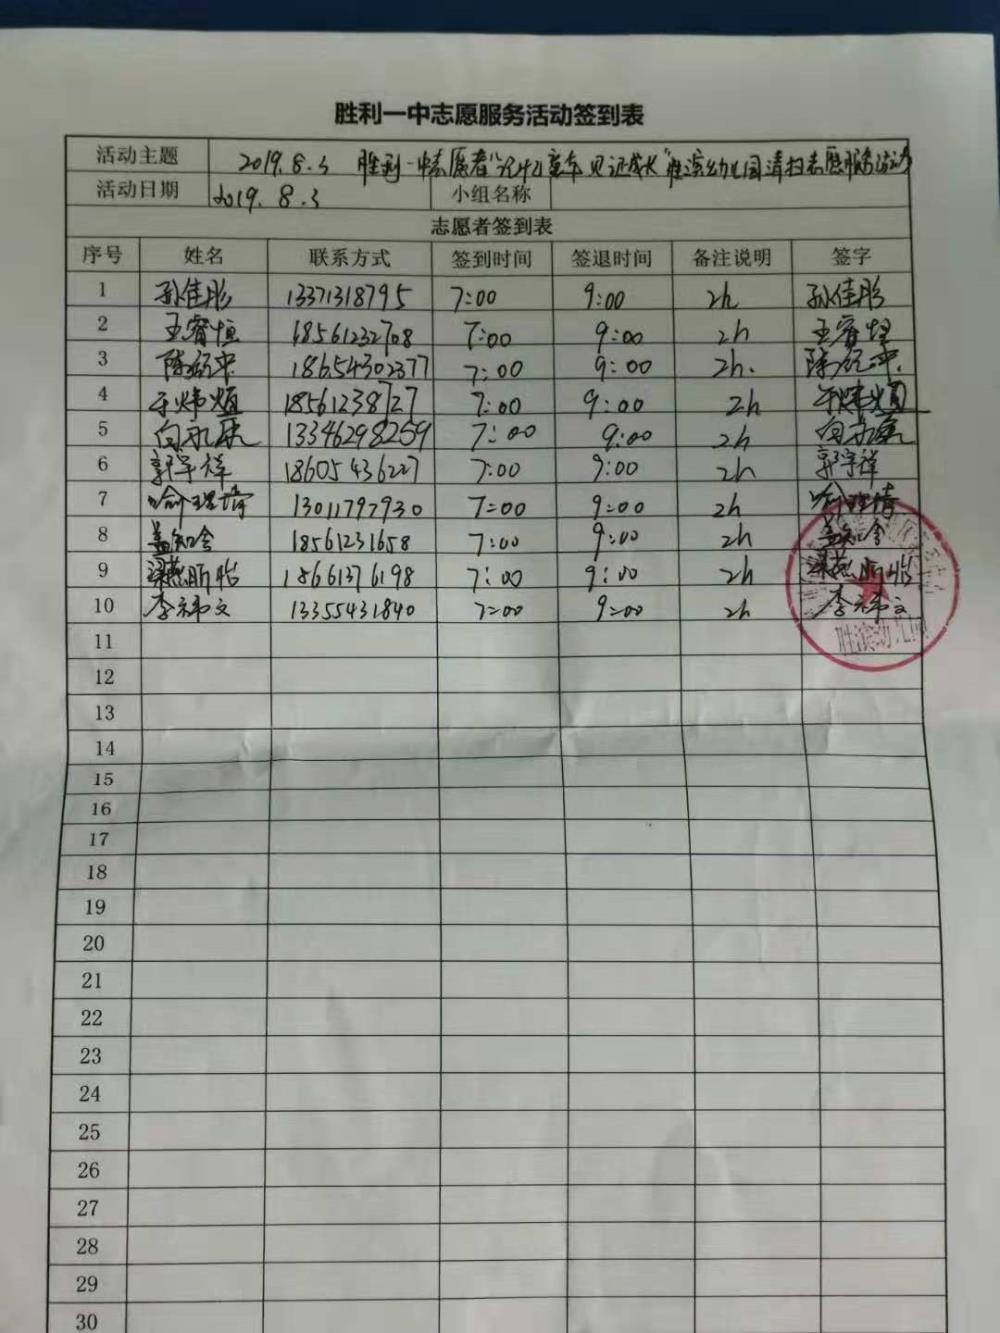 胜利一中志愿服务活动签到表
活动主题 2019.8.3 胜利一中志愿者“记忆童年 见证成长”胜滨幼儿园清扫志愿服务活动
活动日期 2019.8.3 小组名称
志愿者签到表
序号 姓名 联系方式 签到时间 签退时间 备注说明 签字
1 孙佳彤 13371318795 7:00 9:00 2h 孙佳彤
2 王睿恒 18561232708 7:00 9:00 2h 王睿恒
3 陈 18654302377 7:00 9:00 2h. 陈
4 于炜 18561238727 7:00 9:00 2h 于炜
5 向永康 13346298259 7:00 9:00 2h 向永康
6 郭宇祥 18605436227 7:00 9:00 2h 郭宇祥
7 13011797930 7:00 9:00 2h
8 盖知含 18561231658 7:00 9:00 2h 盖知含
9 梁燕昕怡 15661376198 7:00 9:00 2h 梁燕昕怡
10 李 文 13355431840 7:00 9:00 2h 李 文
胜滨幼儿园
11
12
13
14
15
16
17
18
19
20
21
22
23
24
25
26
27
28
29
30